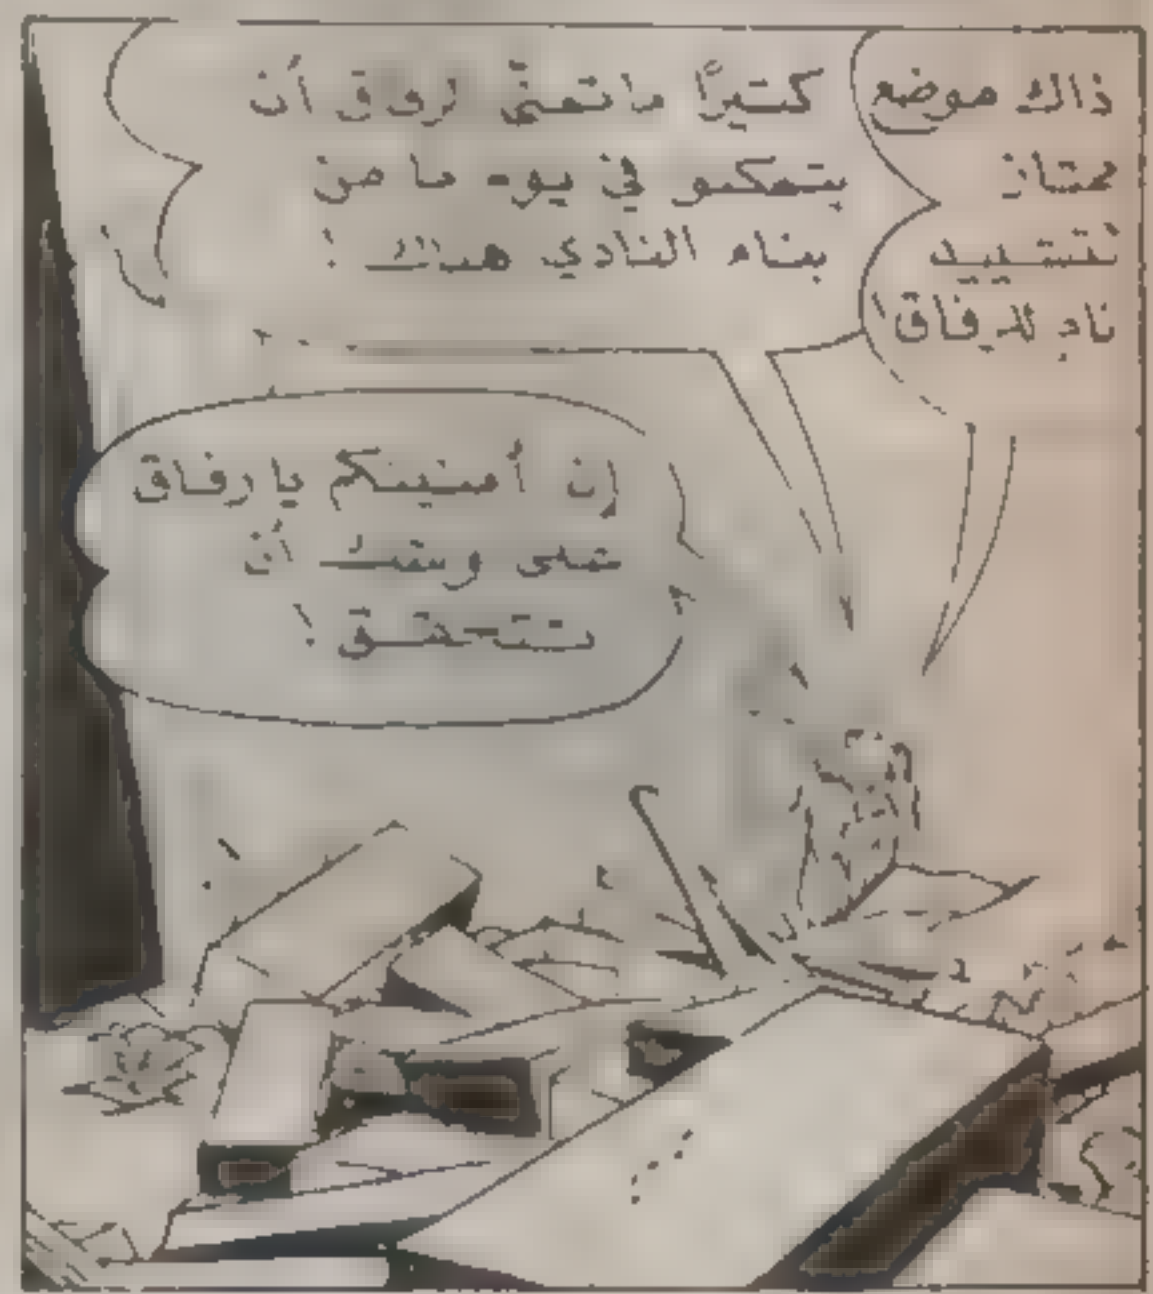 ذاك موضع
ممتاز
لتشييد
ناد للرفاق!
كثيرًا ما تمنّى رفاق أن
يتمكنوا في يوم ما من
بناء النادي هناك!
إن أمنيتكم يا رفاق
على وشك أن
تتحقق!